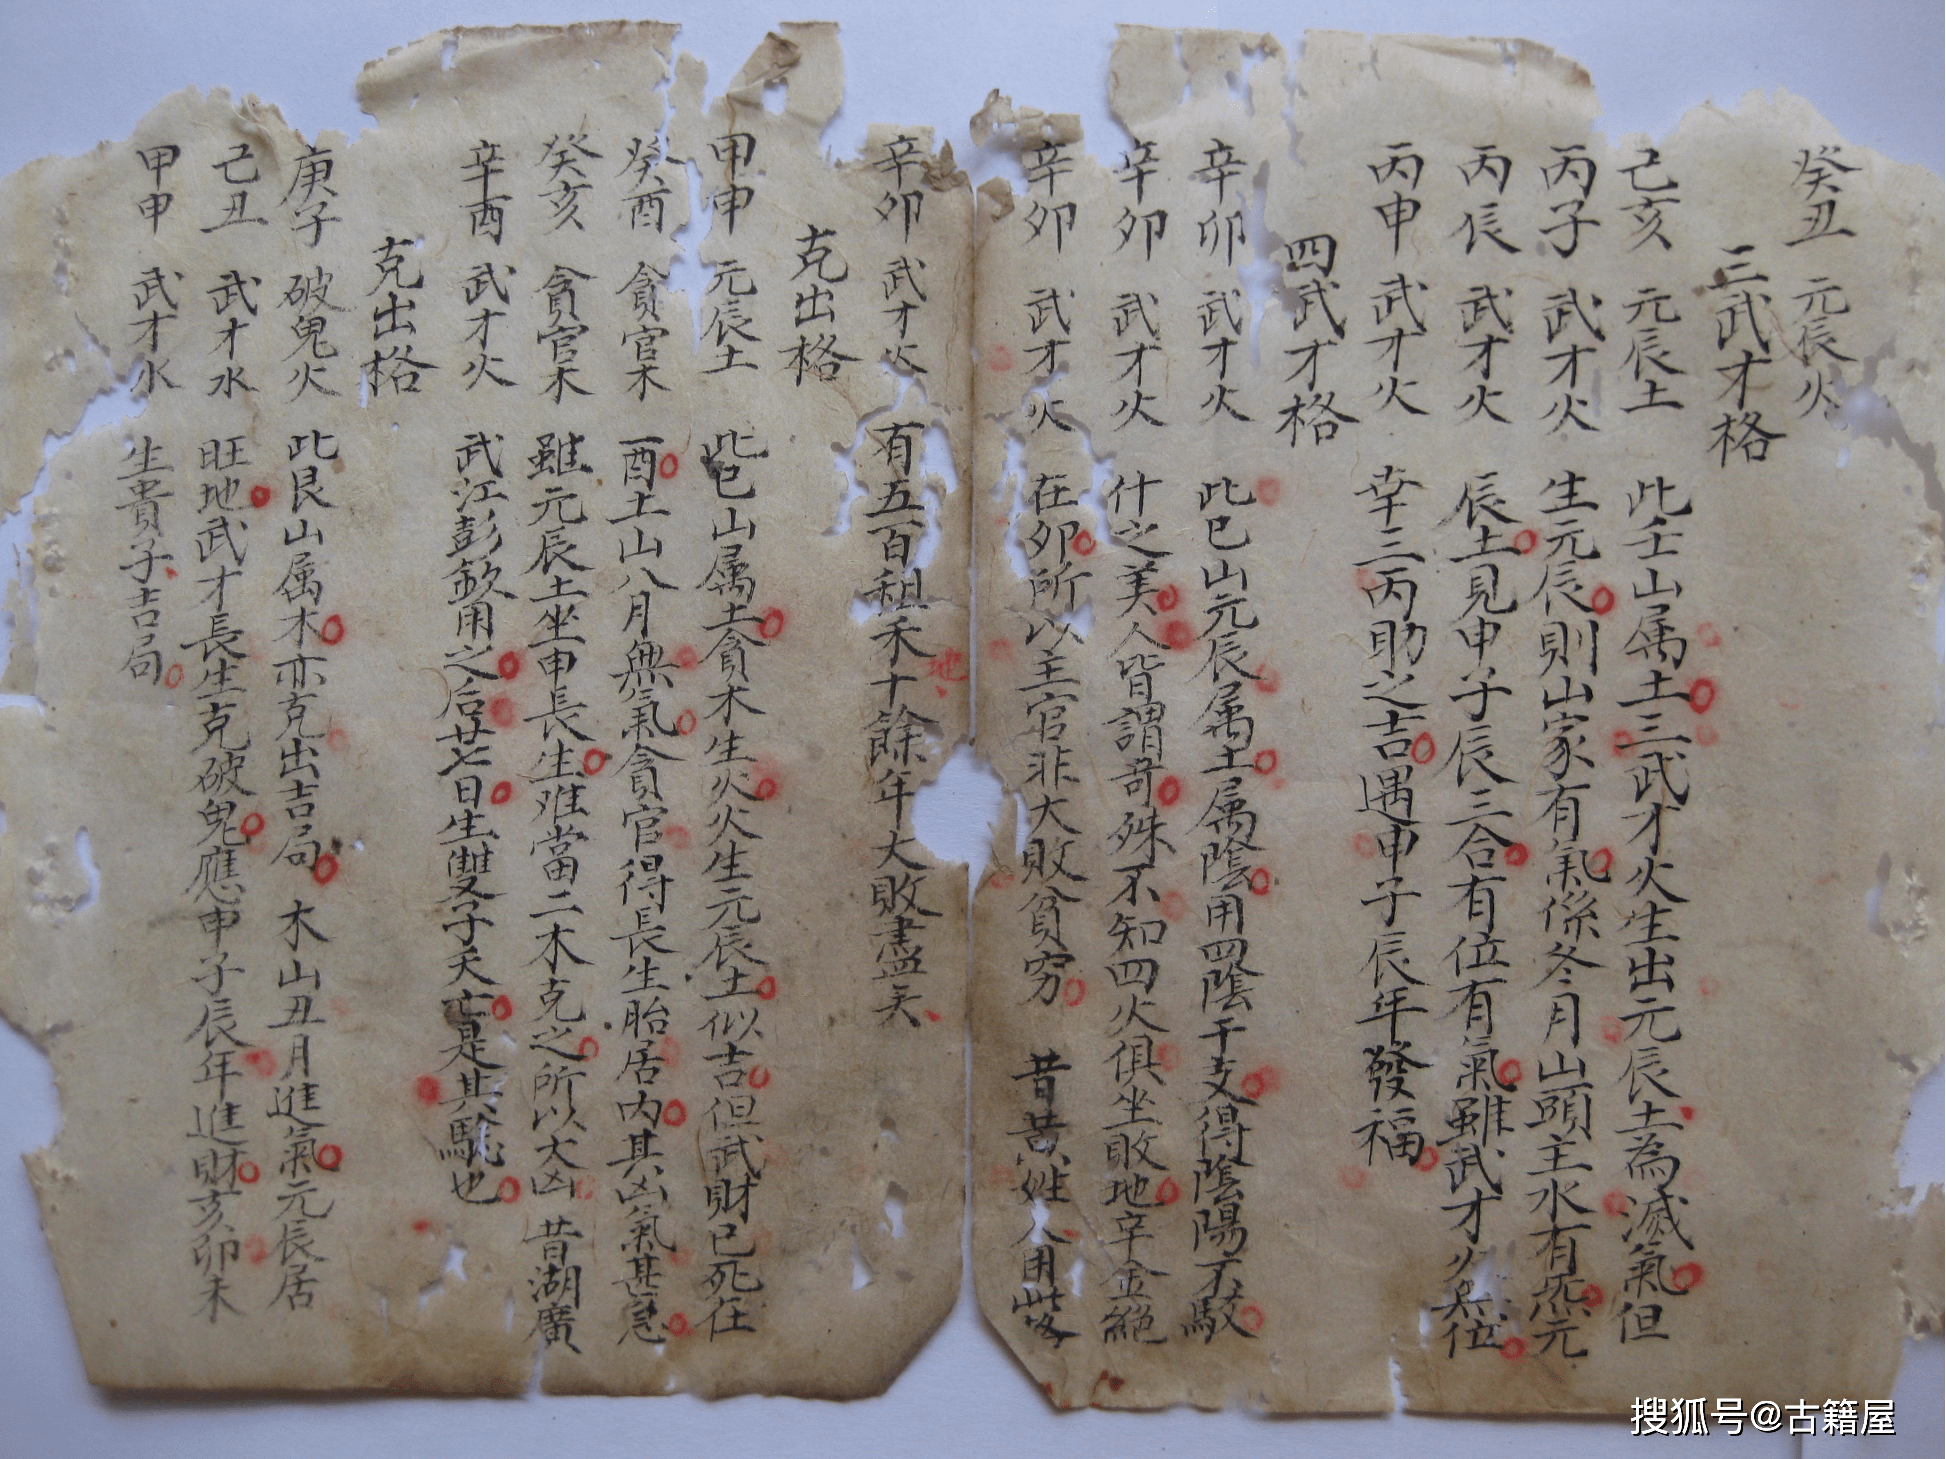 癸丑 元辰火
三武才格
己亥 元辰土 此壬山属土三武才火生出元辰土為滅氣但
丙子 武才火 生元辰則山家有氣係冬月山頭主水有炁元
丙辰 武才火 辰土見申子辰三合有位有氣雖武才火無位
丙申 武才火 幸三丙助之吉遇申子辰年發福
四武才格
辛卯 武才火 此巳山元辰属土属陰用四陰干支得陰陽不駁
辛卯 武才火 什之美人皆謂奇殊不知四火俱坐敗地辛金絕
辛卯 武才火 在卯所以主官非大敗貧穷 昔黄姓人用此
辛卯 武才火 有五百租禾十餘年大敗盡矣
地
克出格
甲申 元辰土 此巳山属土貪木生火火生元辰土似吉但武財已死在
癸酉 貪官木 酉土山八月無氣貪官得長生胎居内其凶氣甚急
癸亥 貪官木 雖元辰土坐申長生难當二木克之所以大凶 昔湖廣
辛酉 武才火 武江彭敘用之后廿七日生雙子夭亡是其驗也
克出格
庚子 破鬼火 此艮山属木亦克出吉局 木山丑月進氣元辰居
己丑 武才水 旺地武才長生克破鬼應申子辰年進財亥卯未
甲申 武才水 生貴子吉局
搜狐号@古籍屋